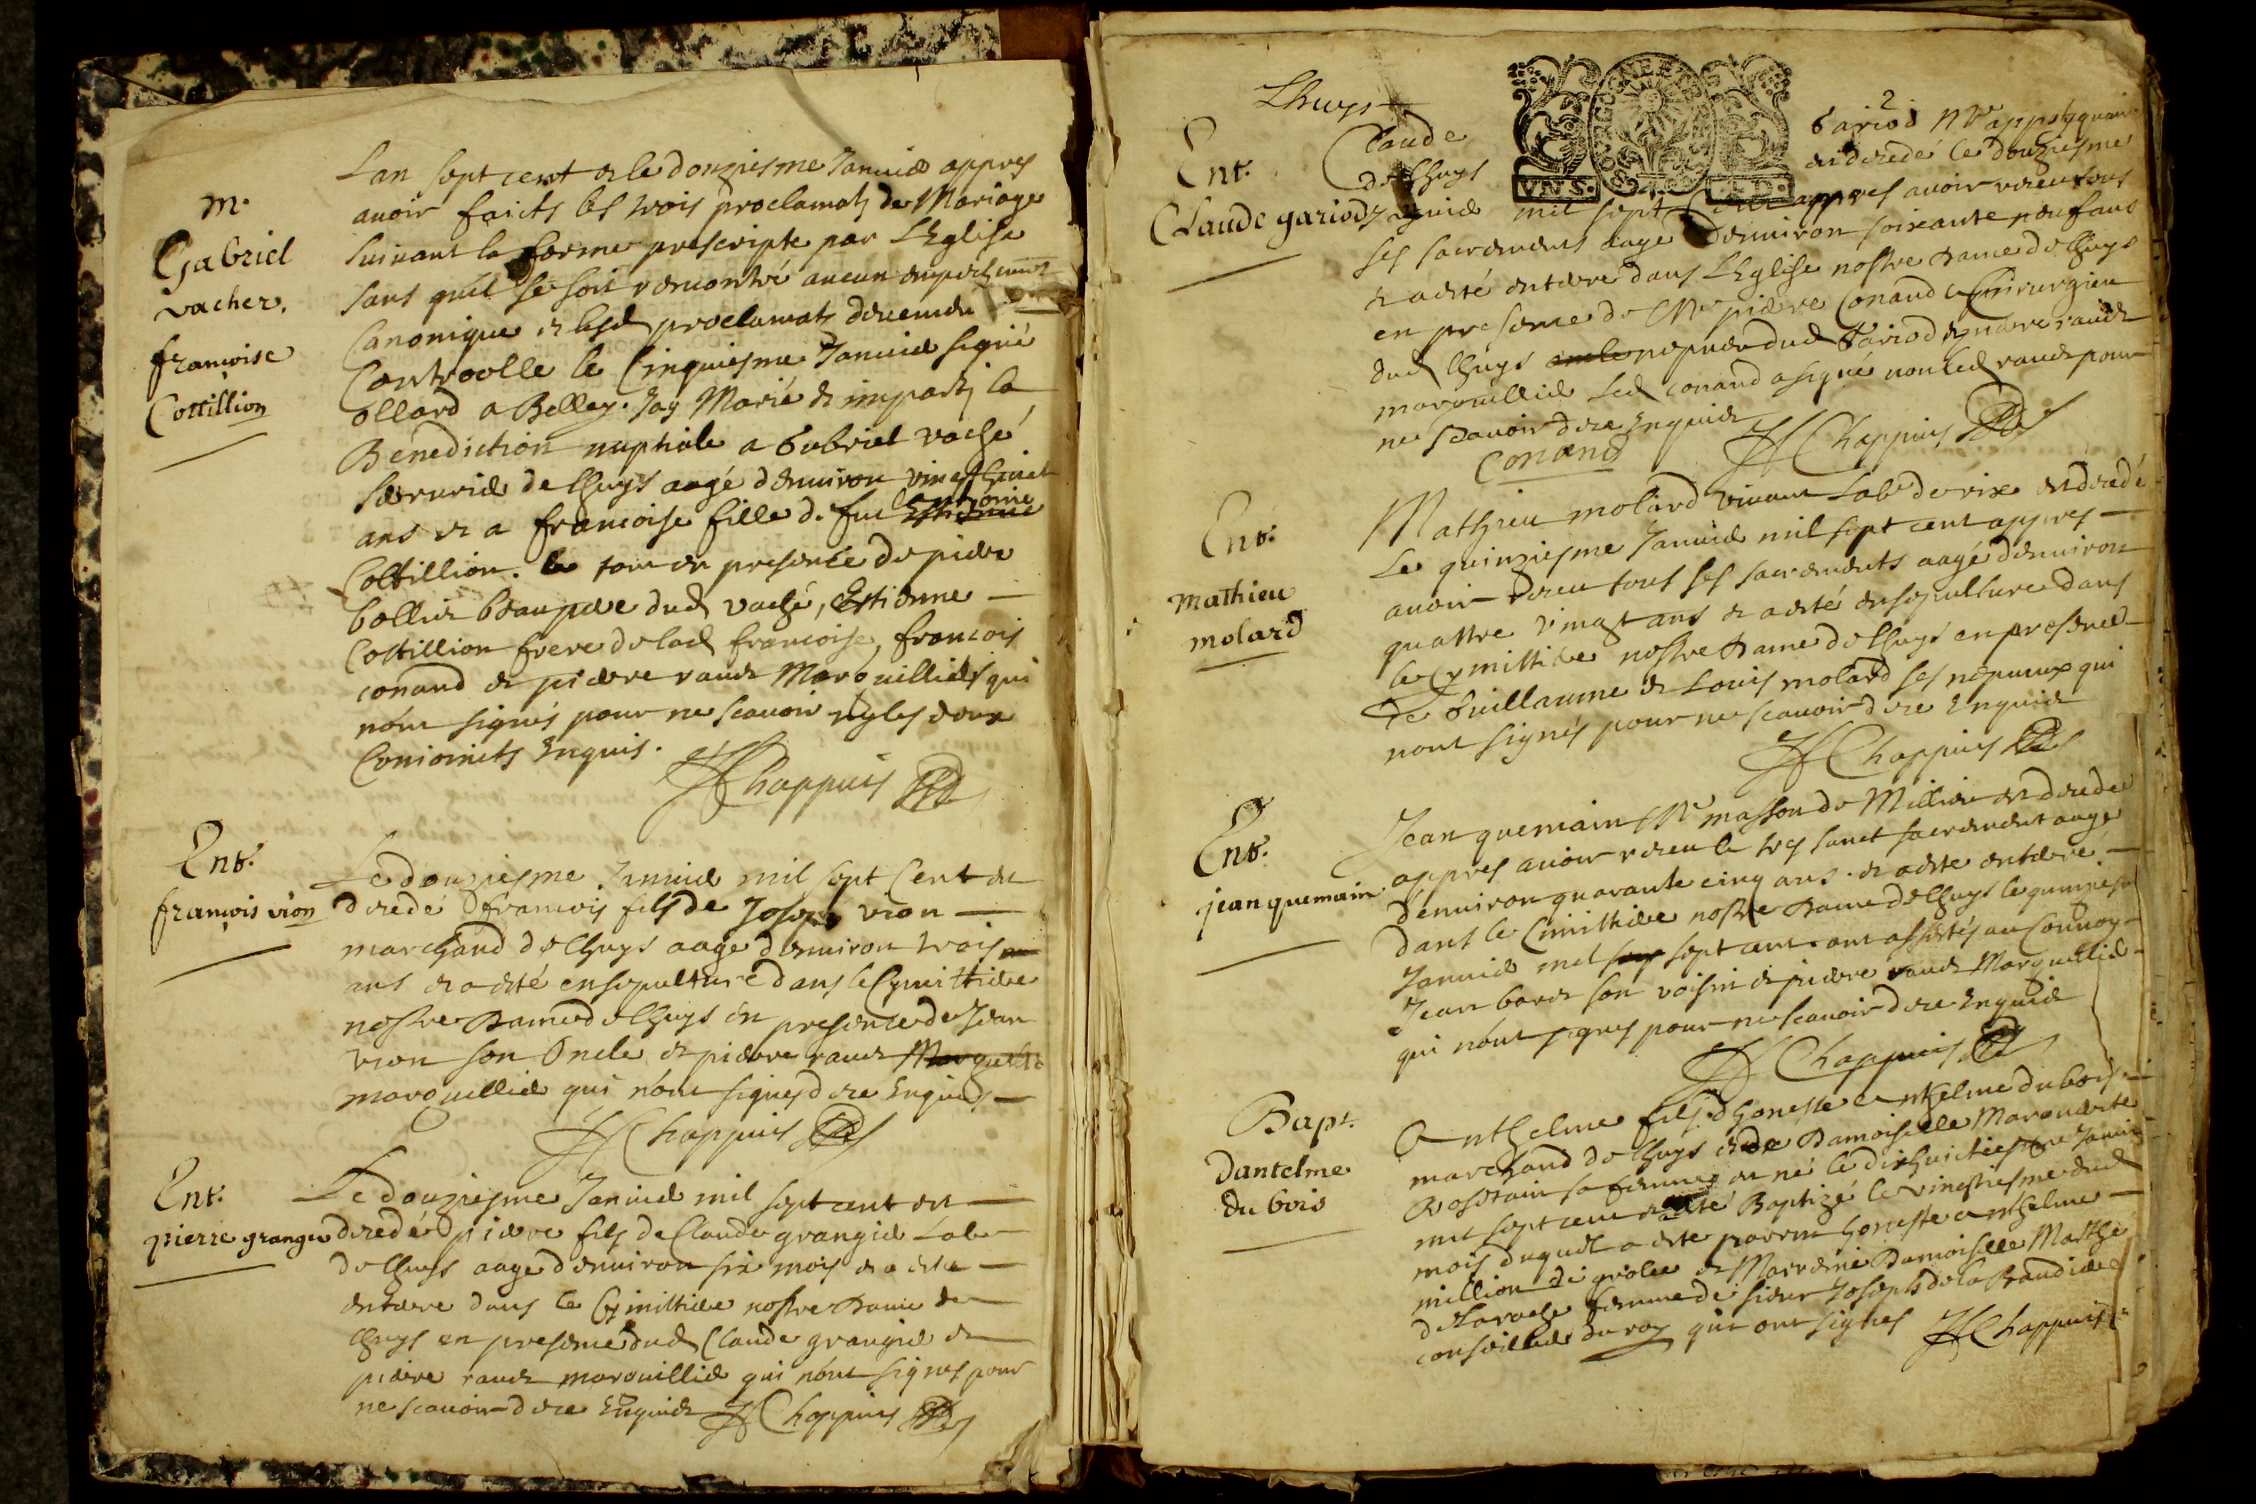 M.
Gabriel
vacher.
francoise
Cottillion
Lan sept cent & le douziesme Januier appres
auoir faicts les trois proclamats de Mariage
suiuant la forme prescripte par LEglise
sans quil se soit rencontré aucun empechement
Canonique & lesd proclamats deuement
Controolle le Cinquiesme Januier signé
ollard a Belley. Jay Marié & imparti la
Benediction nuptiale a Gabriel vaché
de Lhuys aagé denuiron vingt huict
ans & a francoise fille de feu Estienne antoine
Cottillion. le tout en presence de pierre
bollier beaupere dud vaché, Estienne
Cottillion frere de lad francoise, francois
conand & pierre raude Marguillier qui
nont signés pour ne scauoir ny les deux
Conioincts Enquis.
Chappuis
Ent.
françois vion
Le douziesme Januier mil sept Cent est
decedé francois fils de Joseph vion
marchand de Lhuys aagé denuiron trois
ans & a esté ensepulturé dans le Cymittiere
nostre Dame de Lhuys en presence de Jean
vion son Oncle & pierre raude Marguillier
marguillier qui nont signes de ce Enquis
Chappuis
Ent.
pierre granger
Le douziesme Januier mil sept cent est
decedé pierre fils de Claude grangier Lab
de Lhuys aagé denuiron six mois & a esté
enterre dans le Cymittiere nostre Dame de
Lhuys en presence dud Claude grangier &
pierre raude marguillier qui nont signes pour
ne scauoir de ce Enquis Chappuis
2
Lhuys
Ent.
Claude gariod
VNS. S. 4. D.
Claude Gariod Me appotiquaire
de Lhuys est decedé le douziesme
Januier mil sept Cent appres auoir receu tous
ses sacrements aagé denuiron soixante neuf ans
& a esté enterre dans LEglise nostre Dame de Lhuys
en presence de Me pierre Conand Chirurgien
dud Lhuys nepueu dud Gariod & pierre raude
marguillier Led conand a signé non led raude pour
ne scauoir de ce Enquis
Conand Chappuis
Ent.
Mathieu
molard
Mathieu molard viuant Lab de rix est decedé
Le quinziesme Januier mil sept cent appres
auoir receu tous ses sacrements aagé denuiron
quattre vingt ans & a esté ensepulture dans
le Cymittiere nostre Dame de Lhuys en presence
de Guillaume & Louis molard ses nepueux qui
nont signés pour ne scauoir de ce Enquis
Chappuis
Ent.
jean quemain
Jean quemain Me masson de Millieu est decede
appres auoir receu le tres sainct sacrement aagé
denuiron quarante cinq ans. & a esté enterré
dans le Cimittiere nostre Dame de Lhuys le quinziesme
Januier mil sep sept cent. ont assistés au Conuoy
Jean bord son voisin & pierre raude Marguillier
qui nont signes pour ne scauoir de ce Enquis
Chappuis
Bapt.
Dantelme
du bois
Anthelme fils dhoneste anthelme dubois
marchand de Lhuys & de Damoiselle Marguerite
Rosetain sa femme est né le dixhuictiesme Januier
mil sept cent & a esté Baptizé le vingtiesme dud
mois duquel a esté parrin honeste anthelme
million de grolee & Marrine Damoiselle Marthe
de Laroche femme de sieur Joseph de la Brandiere
conseiller du roy qui ont signes Chappuis